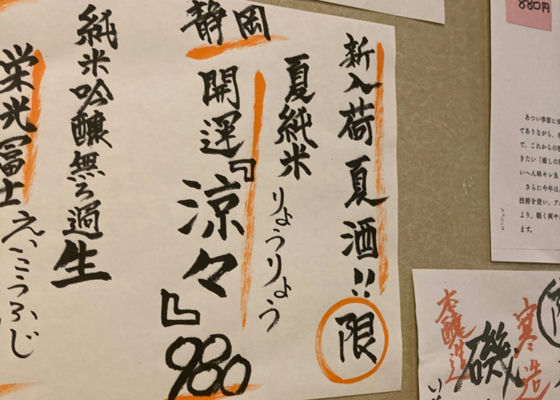 新入荷 夏酒!!
限
夏純米
りょうりょう
静岡
開運『涼々』
980
純米吟醸無ろ過生
栄光冨士
えいこうふじ
880円
あつい季節に
でありながら、
で、これからの
きたい「癒しの
いへん味キレ良
さらに今年は
技術を使い、ア
より、軽く爽や
ます。
寒造
本醸造
磯